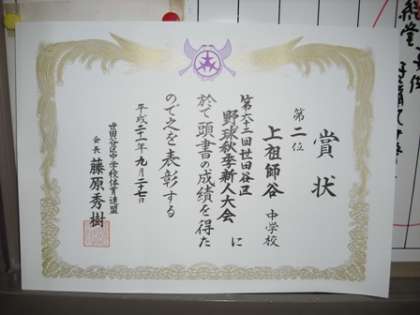 賞状
第二位
上祖師谷中学校
第六十三回世田谷区
野球秋季新人大会に
於て頭書の成績を得た
のでこれを表彰する
平成二十一年九月二十七日
世田谷区中学校体育連盟
会長 藤原秀樹